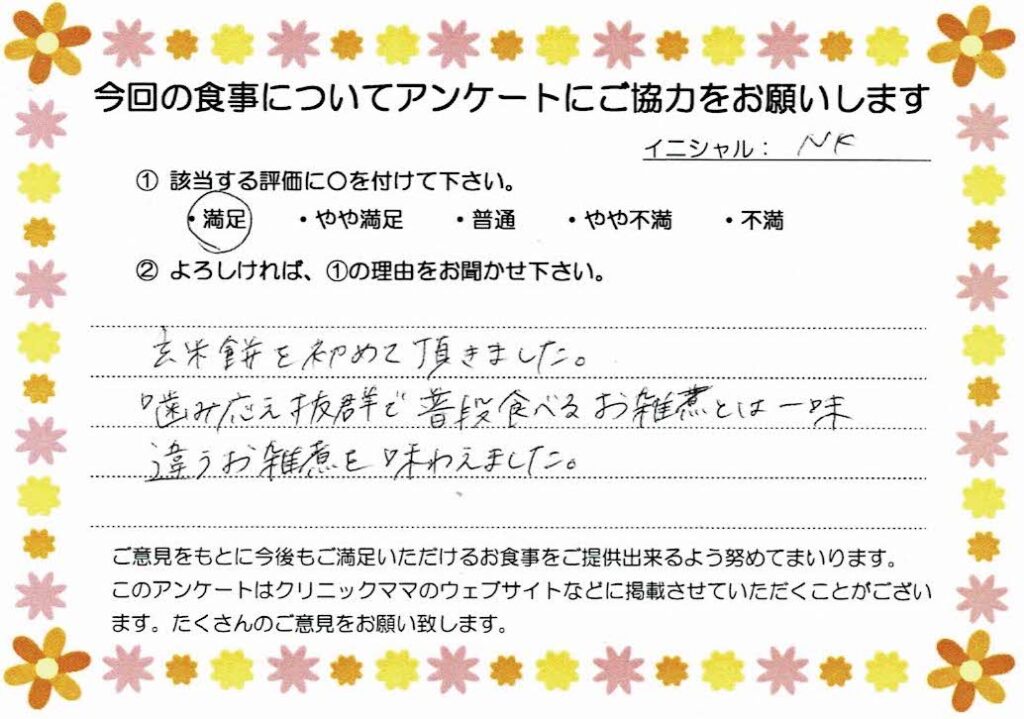 今回の食事についてアンケートにご協力をお願いします
イニシャル： NK
① 該当する評価に〇を付けて下さい。
・満足 ・やや満足 ・普通 ・やや不満 ・不満
② よろしければ、①の理由をお聞かせ下さい。
玄米餅を初めて頂きました。
噛み応え抜群で普段食べるお雑煮とは一味
違うお雑煮を味わえました。
ご意見をもとに今後もご満足いただけるお食事をご提供出来るよう努めてまいります。
このアンケートはクリニックママのウェブサイトなどに掲載させていただくことがござい
ます。たくさんのご意見をお願い致します。